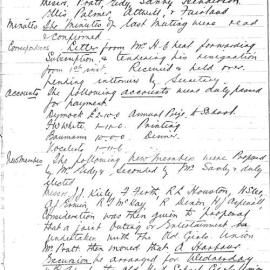 Messrs. Pratt, Sedy, Sandy, Henderson,
Ellis Palmer, Attwill, & Fairland
Minutes The Minutes of last Meeting were read
& confirmed.
Correspondence Letter from Mr H. E. Neal forwarding
Subscription, & tendering his resignation
from 1st inst. Received & held over
pending interview by Secretary
Accounts The following accounts were duly passed
for payment.
Dymock £2-10-0 Annual Prize to School.
F W White 1-11-0. Printing
Baumann 10-0-0 Dinner.
Vocalists 1-10-0
New Members The following new members were Proposed
by Mr. Sedy & Seconded by Mr. Sandy & duly
elected
Messrs. J J Kiely, F. Firth, R L Houston, H Slee,
A J Ervin, R J McKay, R Dixon, H J Aspinall
Consideration was then given to proposal
that a joint Outing or Entertainment be
undertaken with the Old Girls Union
Mr. Pratt then moved that a Harbour
Excursion be arranged for Wednesday